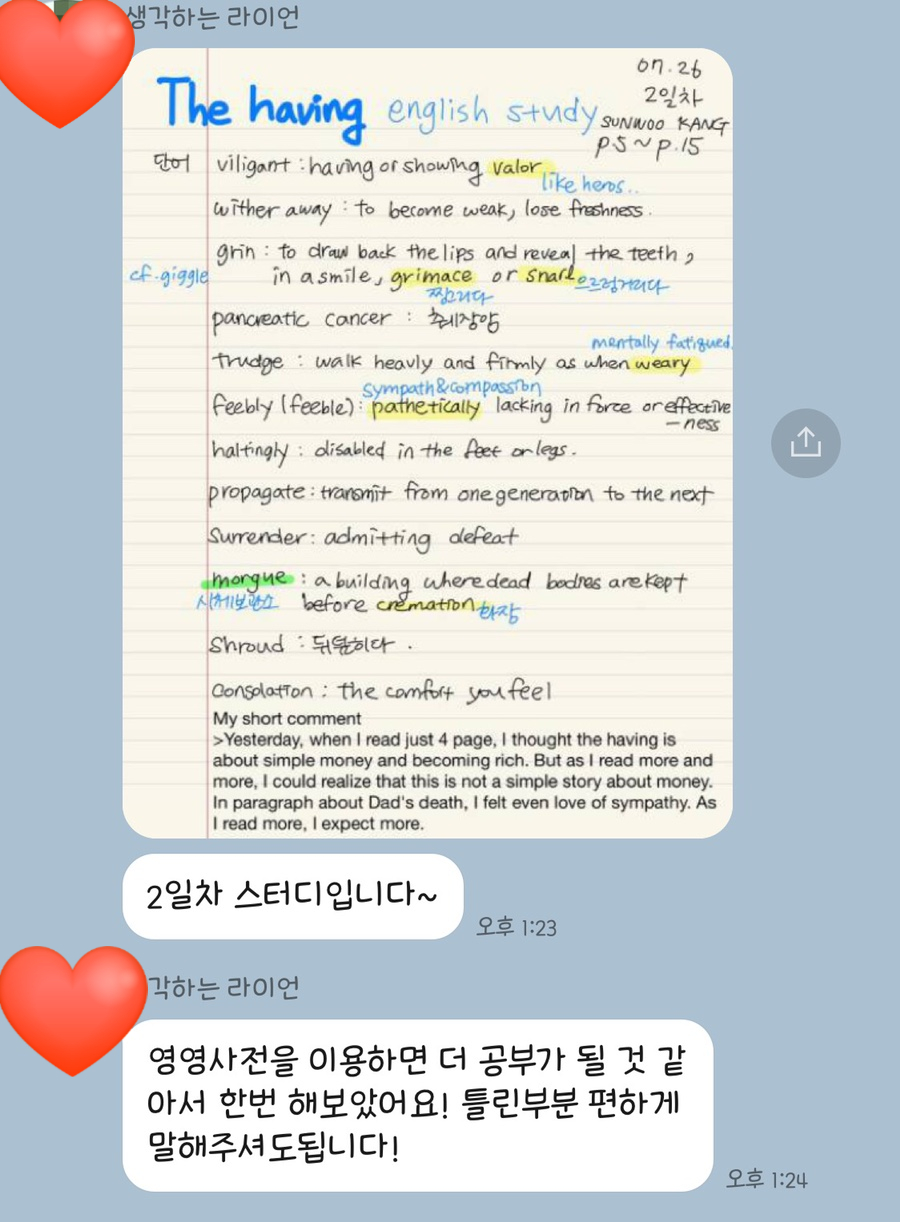 생각하는 라이언
07.26
2일차
The having english study SUNWOO KANG
p.5 ~ p.15
단어 viligant : having or showing valor
like heros..
wither away : to become weak, lose freshness.
grin : to draw back the lips and reveal the teeth,
cf. giggle in a smile, grimace or snarl 으르렁거리다
찡그리다
pancreatic cancer : 췌장암
mentally fatigued.
trudge : walk heavly and firmly as when weary
sympath & compassion
feebly (feeble) : pathetically lacking in force or effective
-ness
haltingly : disabled in the feet or legs.
propagate : transmit from one generation to the next
Surrender : admitting defeat
morgue : a building where dead bodies are kept
시체보관소 before cremation 화장
Shroud : 뒤덮히다.
Consolation : the comfort you feel
My short comment
>Yesterday, when I read just 4 page, I thought the having is
about simple money and becoming rich. But as I read more and
more, I could realize that this is not a simple story about money.
In paragraph about Dad's death, I felt even love of sympathy. As
I read more, I expect more.
2일차 스터디입니다~
오후 1:23
각하는 라이언
영영사전을 이용하면 더 공부가 될 것 같
아서 한번 해보았어요! 틀린부분 편하게
말해주셔도됩니다!
오후 1:24